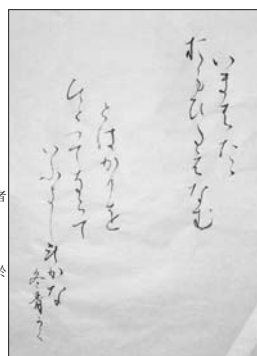 いまはたゝ
おもひたえなむ
とはかりを
ひとつてならて
いふよしもかな
冬青
者
於